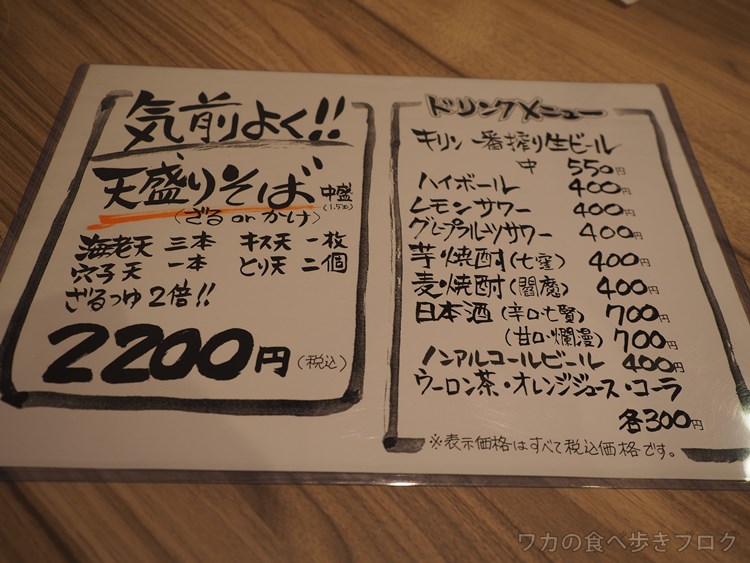 気前よく!!
天盛りそば 中盛(1.5玉)
(ざる or かけ)
海老天 三本 キス天 一枚
穴子天 一本 とり天 二個
ざるつゆ2倍!!
2200円(税込)
ドリンクメニュー
キリン一番搾り生ビール
中 550円
ハイボール 400円
レモンサワー 400円
グレープフルーツサワー 400円
芋・焼酎(七窪) 400円
麦・焼酎(閻魔) 400円
日本酒(辛口・七賢) 700円
(甘口・爛漫) 700円
ノンアルコールビール 400円
ウーロン茶・オレンジジュース・コーラ
各300円
※表示価格はすべて税込価格です。
ワカの食べ歩きブログ